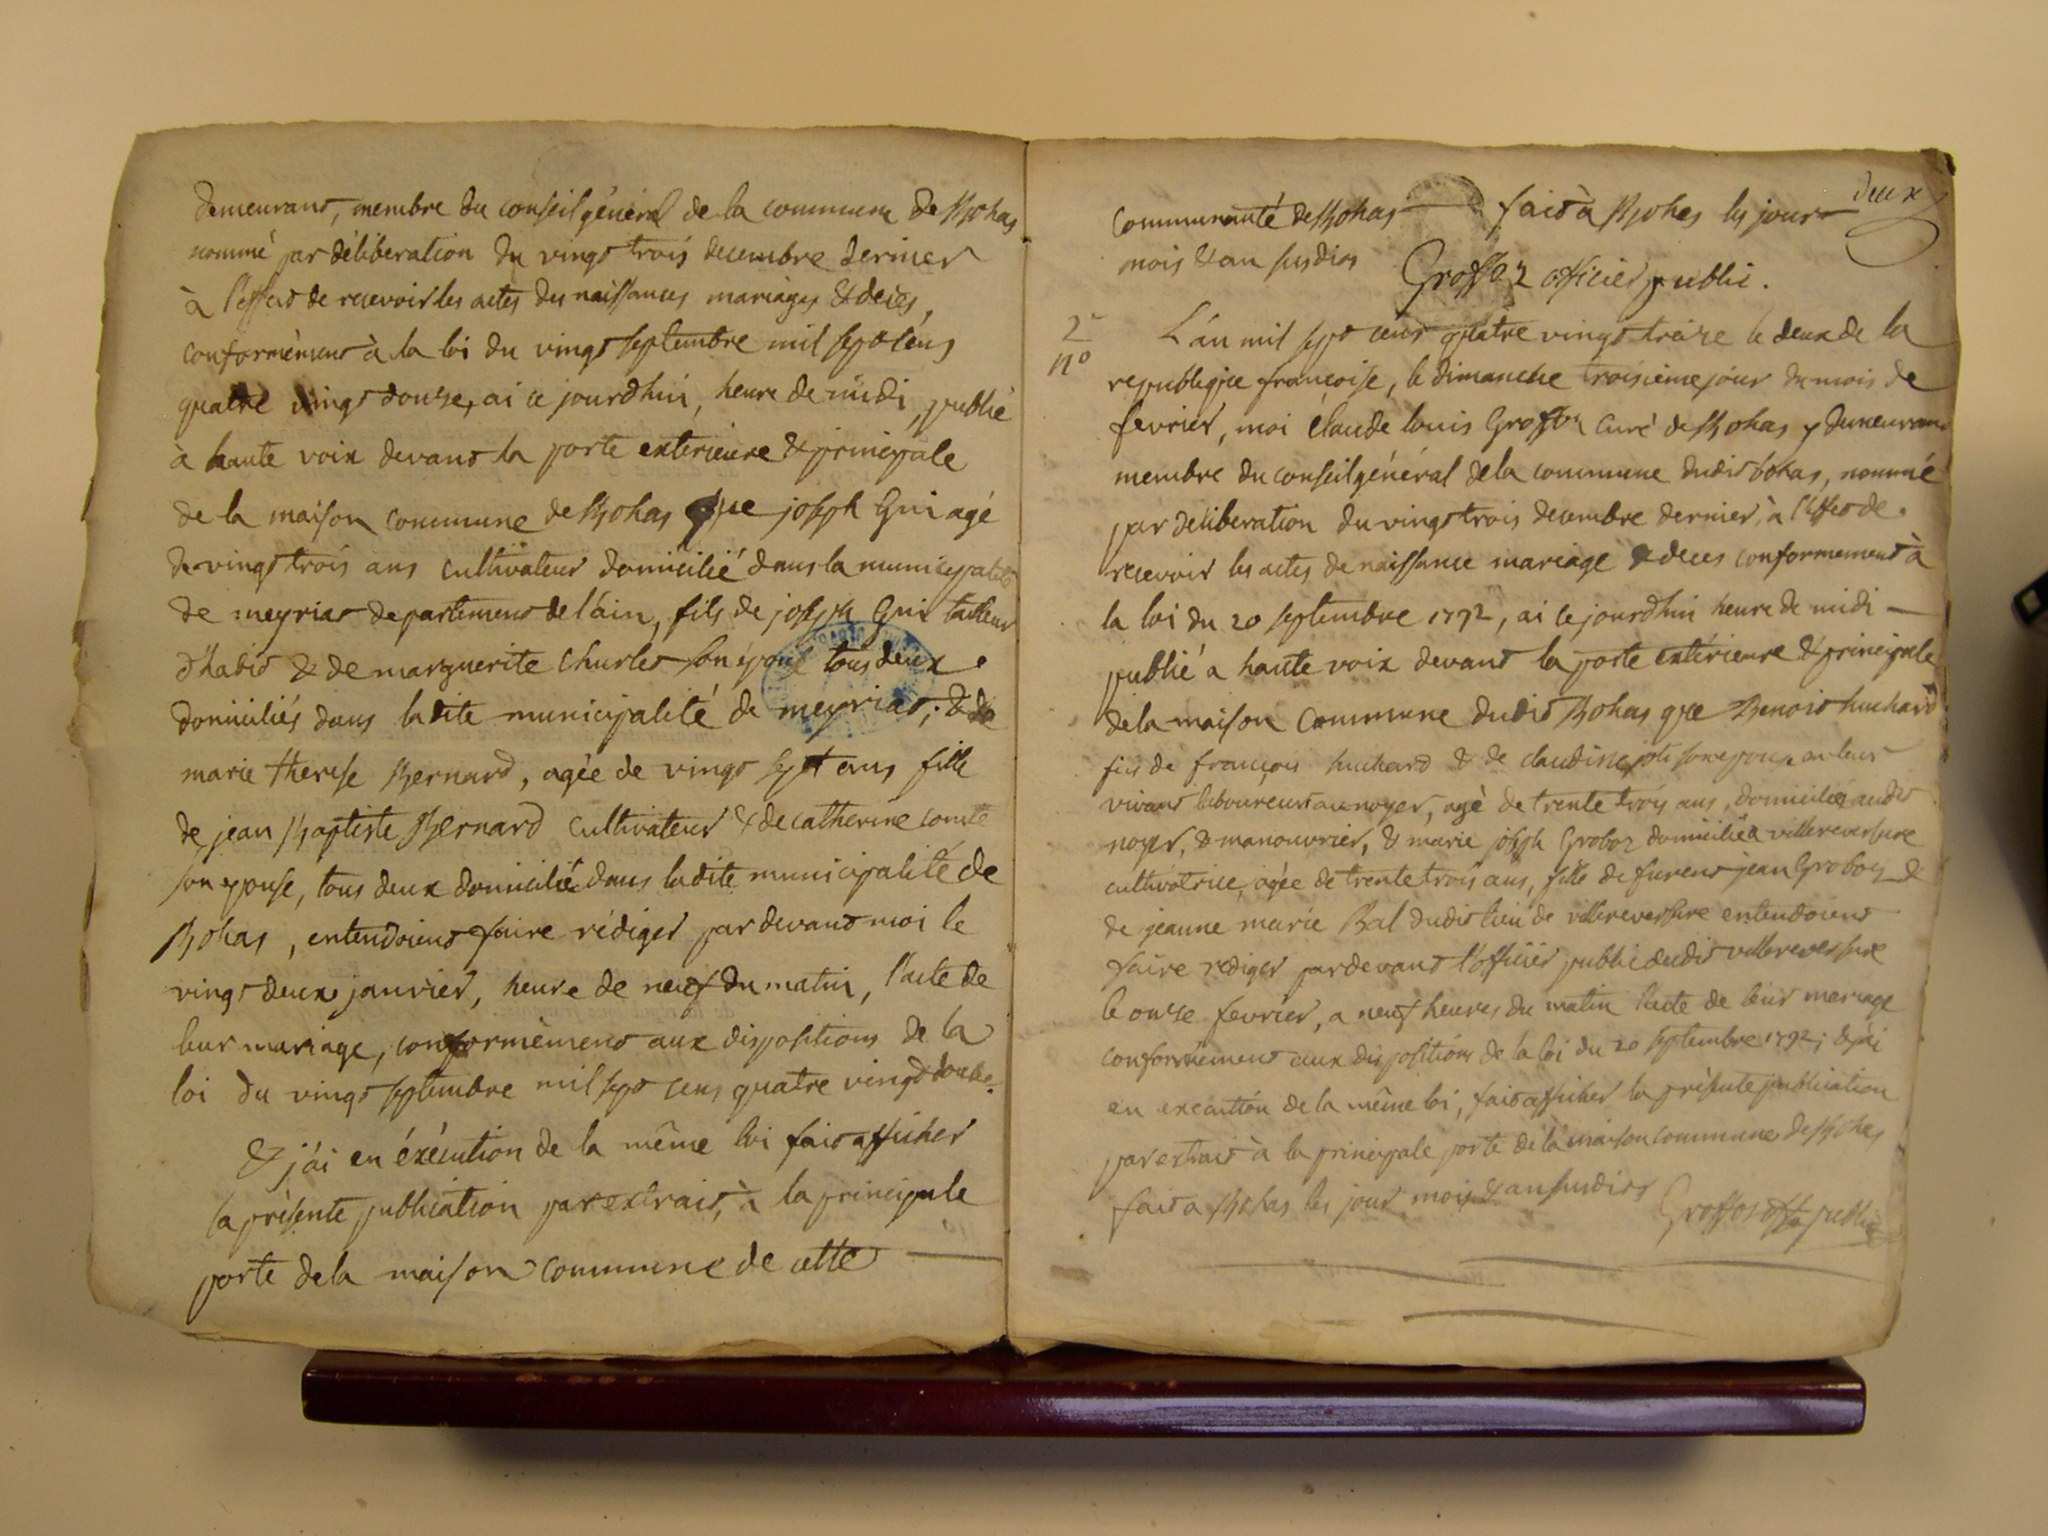 demeurant, membre du conseil général de la commune de Bohas
nommé par délibération du vingt trois decembre dernier
à l'effet de recevoir les actes des naissances mariages & decès,
conformèment à la loi du vingt septembre mil sept cens
quatre vingt douse, ai ce jourdhui, heure de midi, publié
à haute voix devant la porte exterieure & principale
de la maison commune de Bohas que joseph Gui agé
de vingt trois ans cultivateur domicilié dans la municipalité
de meyriat departement de l'ain, fils de joseph Gui tailleur
d'habit & de marguerite Churlet son épouse tous deux
domiciliés dans ladite municipalité de meyriat; & de
marie therese Bernard, agée de vingt sept ans fille
de jean Baptiste Bernard cultivateur & de catherine comte
son epouse, tous deux domicilié dans ladite municipalité de
Bohas, entendoient faire rédiger pardevant moi le
vingt deux janvier, heure de neuf du matin, l'acte de
leur mariage, conformèment aux dispositions de la
loi du vingt septembre mil sept cens quatre vingt douse.
& j'ai en éxécution de la même loi fait afficher
la présente publication par extrait, à la principale
porte de la maison commune de cette
deux
communauté de Bohas fait à Bohas les jour
mois & an susdits
Groffoz officier public.
2
n°
L'an mil sept cens quatre vingt treize le deux de la
republique françoise, le dimanche troisième jour du mois de
fevrier, moi Claude louis Groffoz curé de Bohas y demeurant
membre du conseil général de la commune dudit bohas, nommé
par deliberation du vingt trois decembre dernier, à l'effet de
recevoir les actes de naissance mariage & deces conformement à
la loi du 20 septembre 1792, ai ce jourdhui heure de midi
publié à haute voix devant la porte extérieure & principale
de la maison commune dudit Bohas que Benoit huchard
fils de françois huchard & de claudine joli son epouse en leur
vivant laboureur au noyer, agé de trente trois ans, domicilié audit
noyer, & manouvrier, & marie joseph Groboz domiciliée a villereversure
cultivatrice, agée de trente trois ans, fille de furent jean Groboz &
de jeanne marie Bal dudit lieu de villereversure entendoient
faire rediger pardevant l'officier public dudit villereversure
le onse fevrier, a neuf heures du matin l'acte de leur mariage
conformèment aux dispositions de la loi du 20 septembre 1792; & j'ai
en execution de la même loi, fait afficher la présente publication
par extrait à la principale porte de la maison commune de Bohas
fait a Bohas les jour mois & an susdits
Groffoz off public